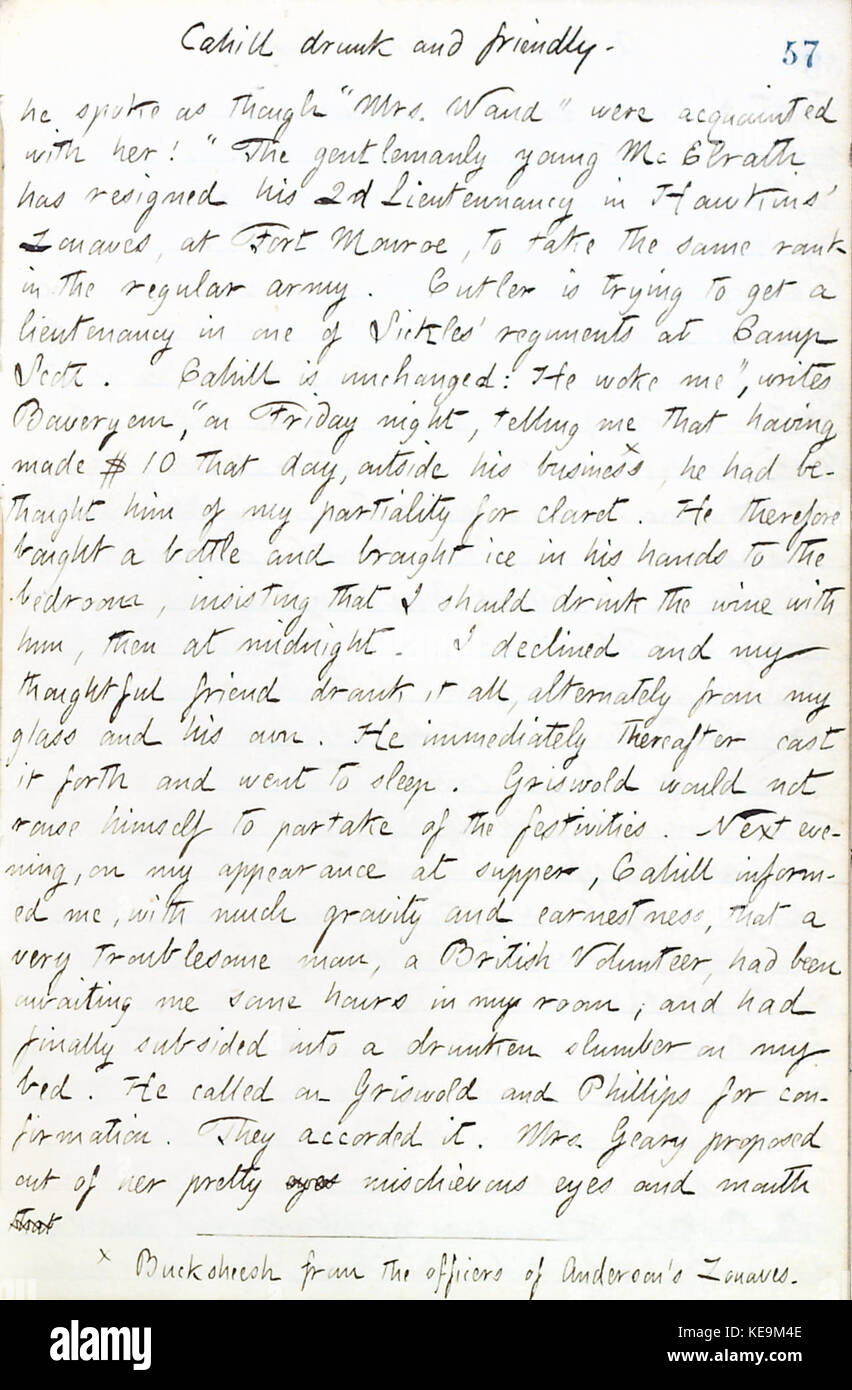 Cahill drunk and friendly.
57
he spoke as though "Mrs. Wand" were acquainted
with her! " The gentlemanly young McElrath
has resigned his 2d Lieutennancy in Hawkins'
Zouaves, at Fort Monroe, to take the same rank
in the regular army. Cutler is trying to get a
lieutenancy in one of Sickles' regiments at Camp
Scott. Cahill is unchanged: He woke me", writes
Boweryem, "on Friday night, telling me that having
made $10 that day, outside his business x, he had be-
thought him of my partiality for claret. He therefore
bought a bottle and brought ice in his hands to the
bedroom, insisting that I should drink the wine with
him, then at midnight. I declined and my
thoughtful friend drank it all, alternately from my
glass and his own. He immediately thereafter cast
it forth and went to sleep. Griswold would not
rouse himself to partake of the festivities. Next eve-
ning, on my appearance at supper, Cahill inform-
ed me, with much gravity and earnestness, that a
very troublesome man, a British Volunteer, had been
awaiting me some hours in my room; and had
finally subsided into a drunken slumber on my
bed. He called on Griswold and Phillips for con-
firmation. They accorded it. Mrs. Geary proposed
out of her pretty eyes mischievous eyes and mouth
that
x Bucksheesh from the officers of Anderson's Zouaves.
alamy
Image ID: KE9M4E
www.alamy.com